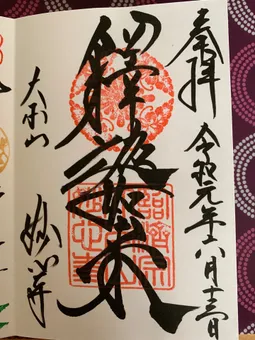 奉拝
令和元年六月十三日
釋迦如来
大本山
妙心寺